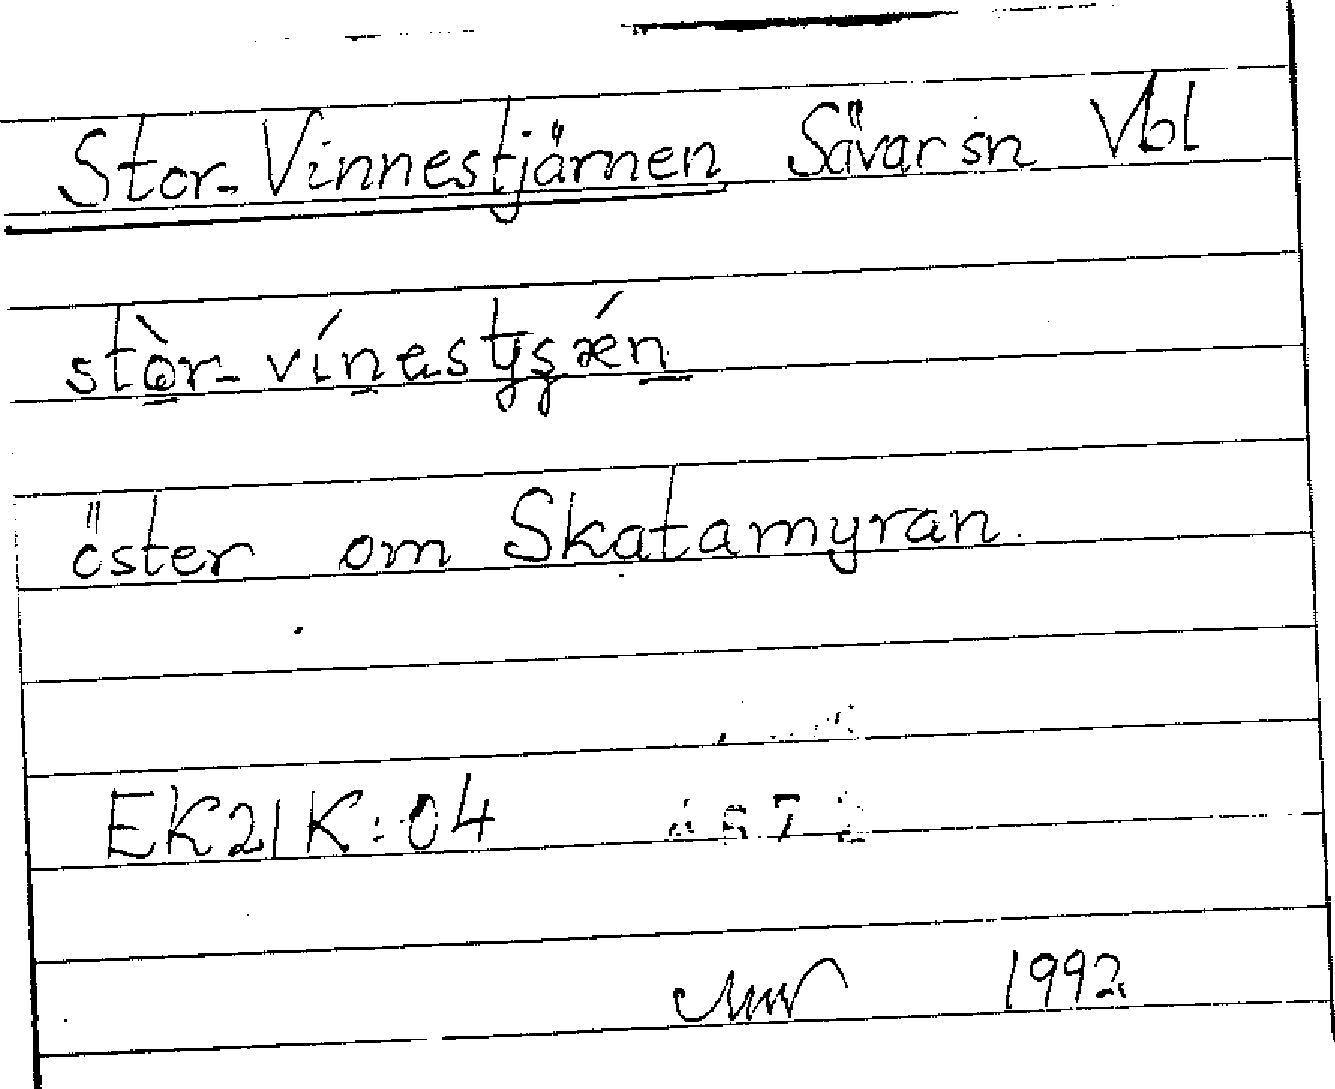 Stor-Vinnestjärnen Sävar sn Vbl
stòr-vínestysǽn
öster om Skatamyran.
EK21K:04
1992